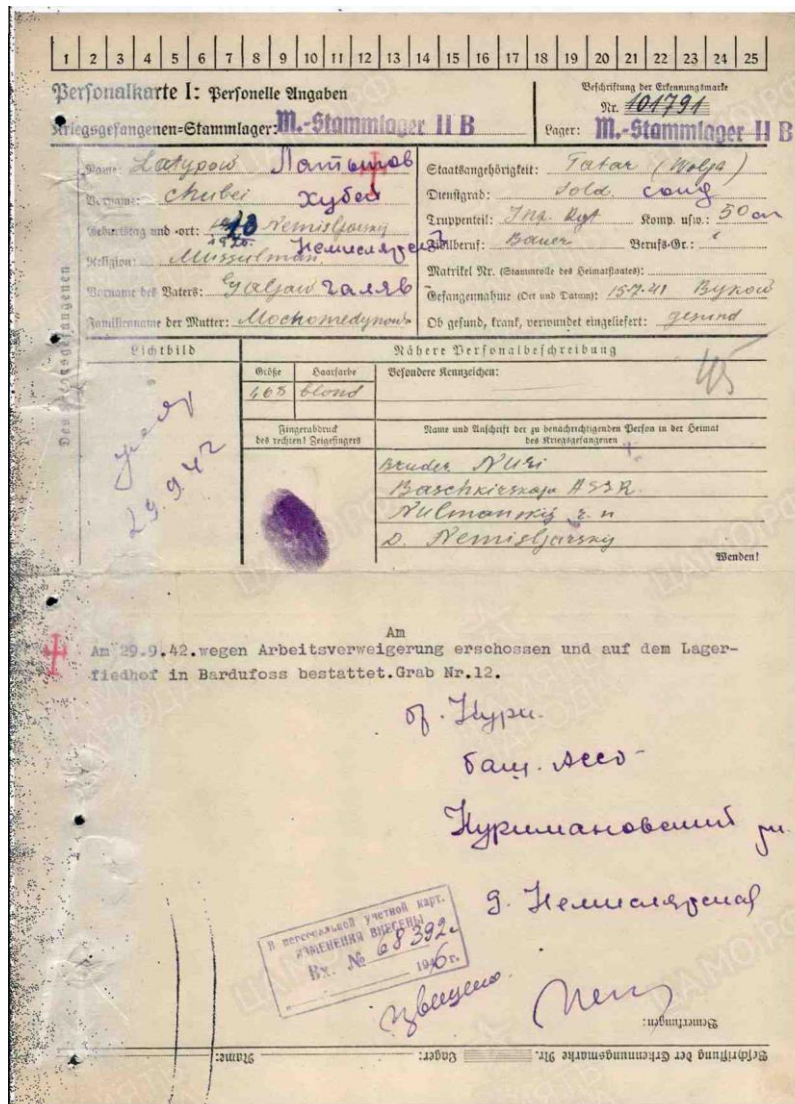 1 2 3 4 5 6 7 8 9 10 11 12 13 14 15 16 17 18 19 20 21 22 23 24 25
Personalkarte I: Personelle Angaben
Beschriftung der Erkennungsmarke
Nr. 101791
Kriegsgefangenen-Stammlager: M.-Stammlager II B
Lager: M.-Stammlager II B
Des Kriegsgefangenen
Name: Latypow Латыпов
Vorname: Chubei Хубей
Geburtstag und -ort: Nemisljarskij
1920
Religion: Musselman
Vorname des Vaters: Galjaw Галяв
Familienname der Mutter: Mochomedynowa
Staatsangehörigkeit: Tatar (Wolga)
Dienstgrad: Sold. солд
Truppenteil: Inf. Rgt Komp. usw.: 50
Zivilberuf: Bauer Berufs-Gr.:
Matrikel Nr. (Stammrolle des Heimatstaates):
Gefangennahme (Ort und Datum): 15.7.41 Bykow
Ob gesund, krank, verwundet eingeliefert: gesund
Lichtbild
29.9.42
Nähere Personalbeschreibung
Größe Haarfarbe Besondere Kennzeichen:
165 blond
Fingerabdruck
des rechten! Zeigefingers
Name und Anschrift der zu benachrichtigenden Person in der Heimat
des Kriegsgefangenen
Bruder Nuri
Baschkirskaja ASSR.
Nulmanskij r. n
D. Nemisljarskij
Wenden!
Am
Am 29.9.42.wegen Arbeitsverweigerung erschossen und auf dem Lager-
fiedhof in Bardufoss bestattet.Grab Nr.12.
бр. Нури.
баш. АССР
Нуримановский рн.
д. Немислярский
В персональной учетной карт.
ИЗМЕНЕНИЯ ВНЕСЕНЫ
Вх. № 68392с
1946г.
Bemerkungen:
Beschriftung der Erkennungsmarke Nr. Lager: Name: